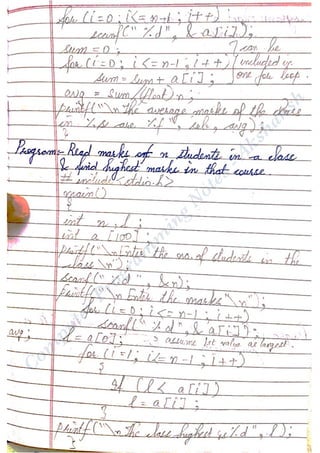 for (i=0; i<=n-1; i++)
scanf("%d", & a[i]);
sum = 0; can be
for (i=0; i<=n-1; i++) included in
sum = sum + a[i]; one for loop.
avg = sum/(float)n;
printf("\n The average marks of the
in %s are %f", sub, avg);
}
Program:- Read marks of n students in a class
& find highest marks in that course.
# include <stdio.h>
main()
{
int n, l;
int a [100];
printf("\n Enter the no. of students in the
class \n");
scanf("%d", &n);
printf("\n Enter the marks \n");
for (i=0; i<=n-1; i++)
scanf("%d", & a[i]);
avg; l = a[0]; → assume 1st value as largest.
for (i=1; i<=n-1; i++)
{
if (l < a[i])
l = a[i];
}
printf("\n The class highest is %d", l);
}